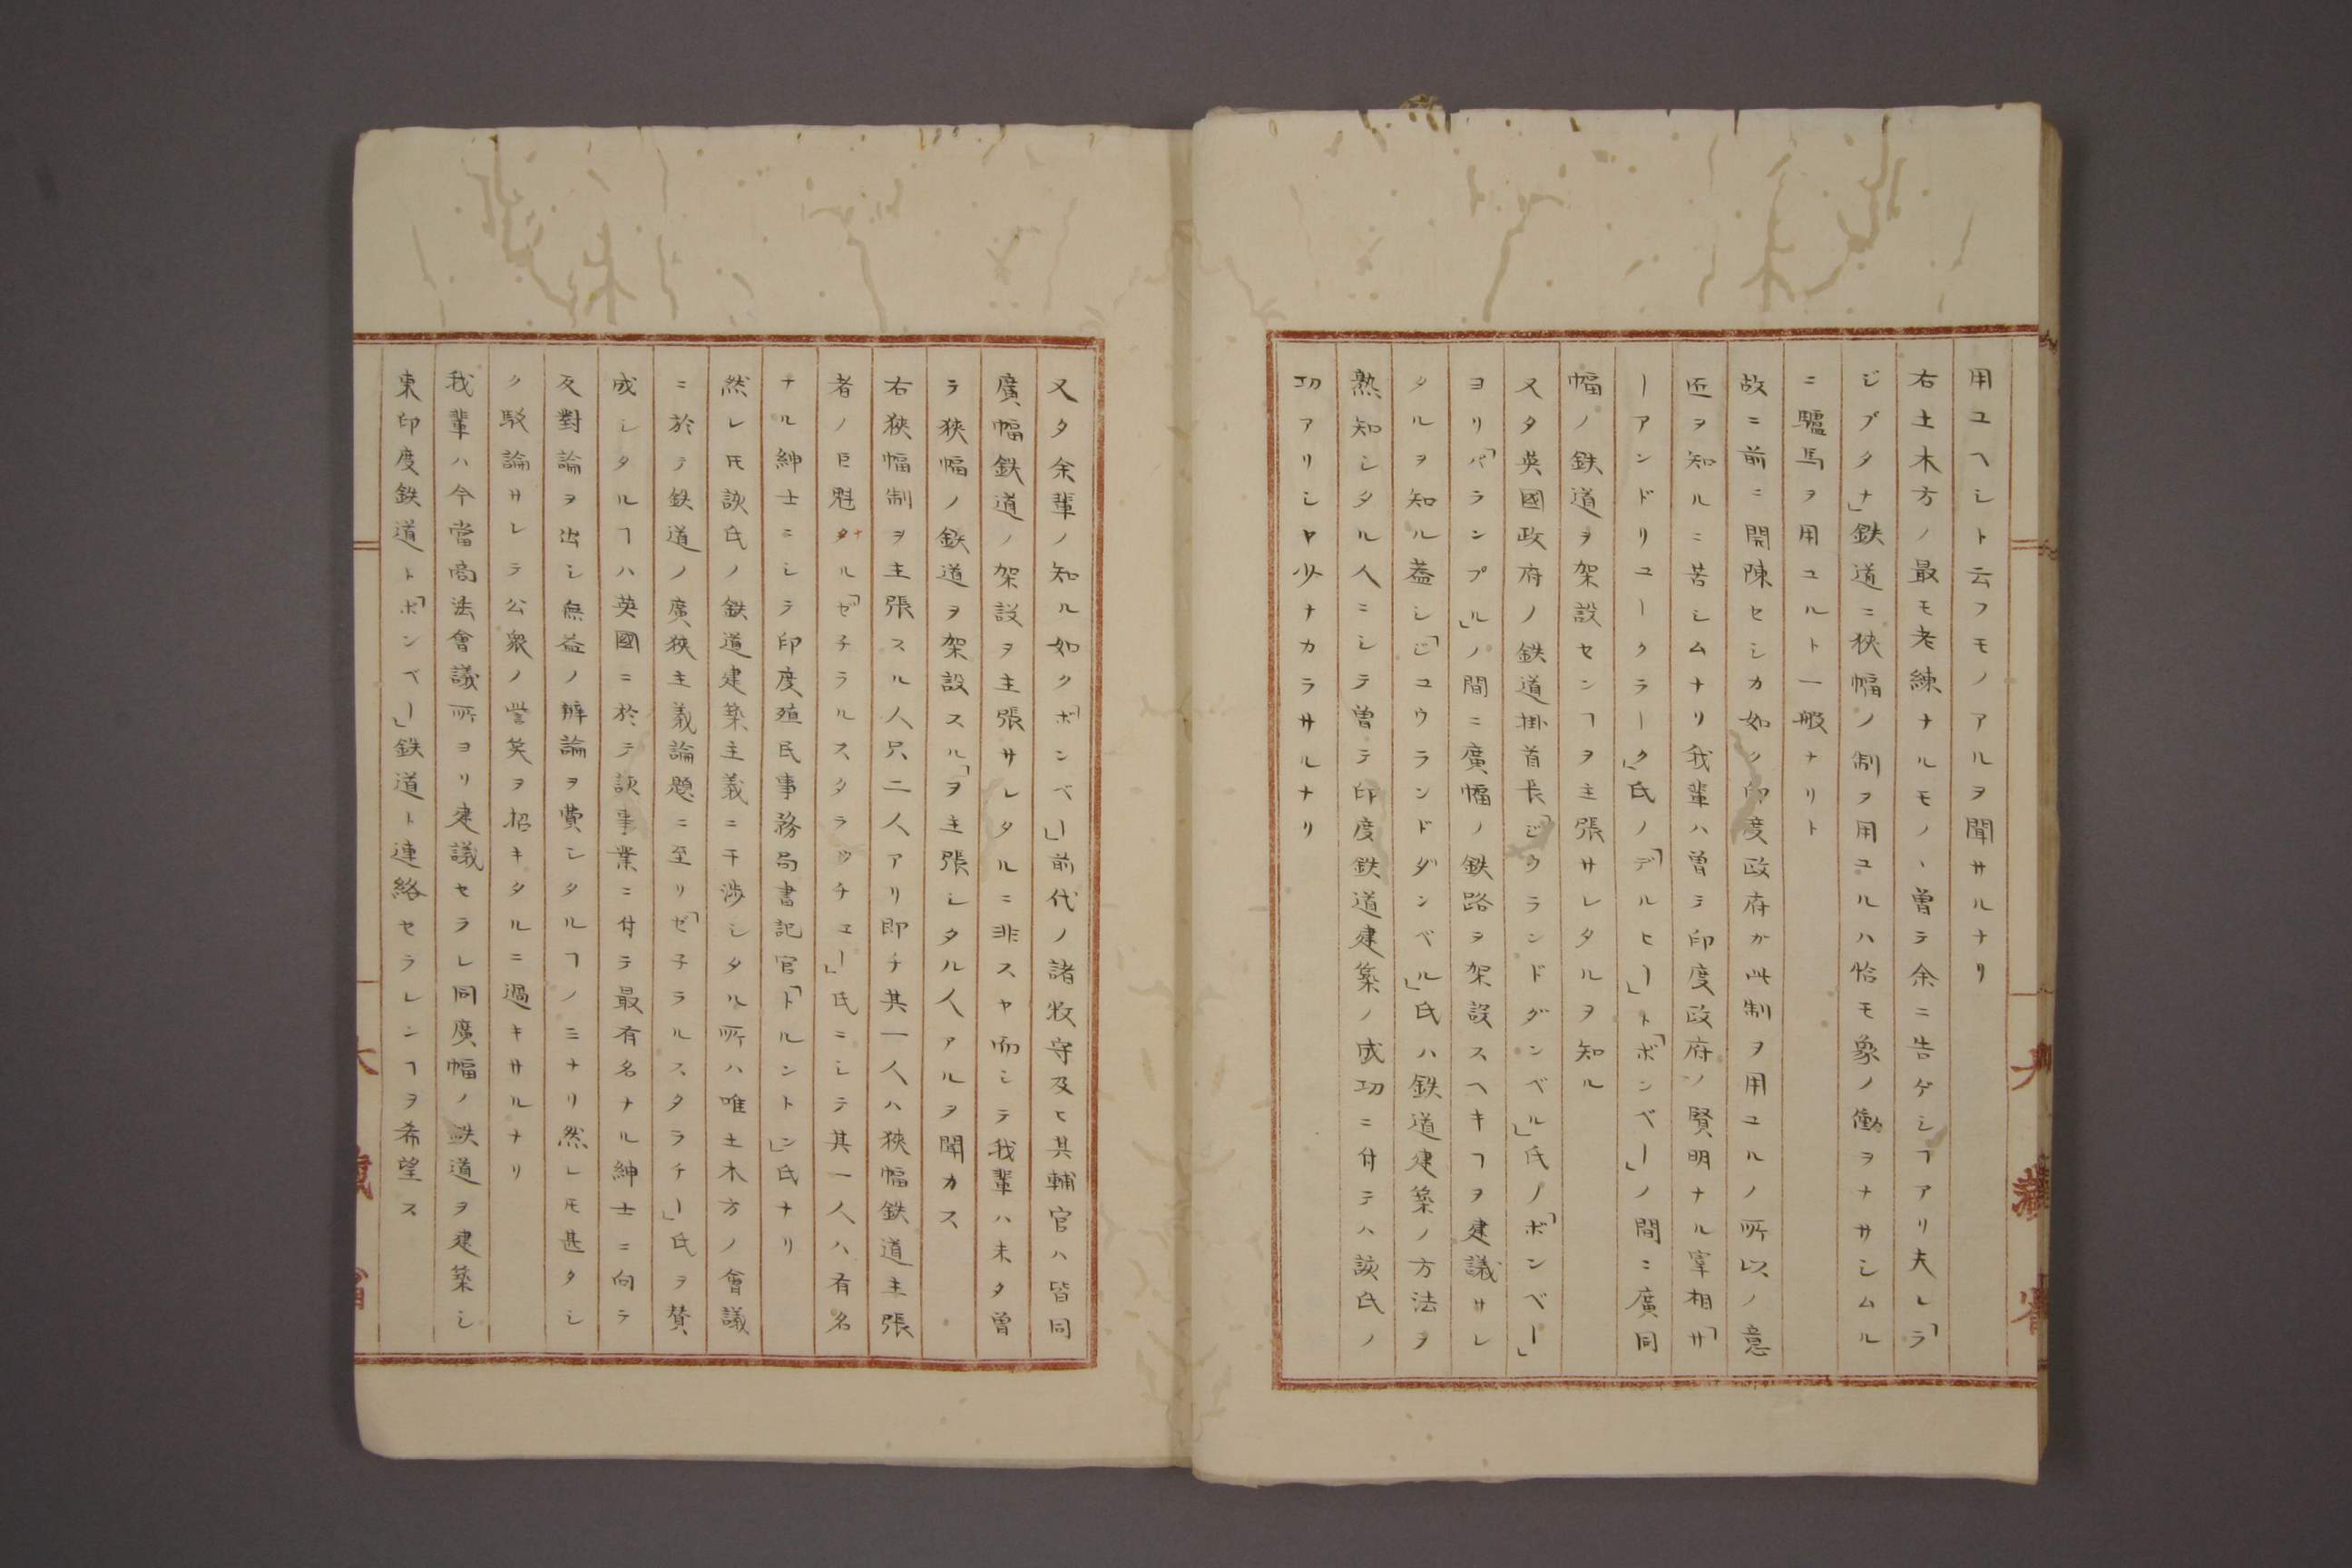 用ユヘシト云フモノアルヲ聞サルナリ
右土木方ノ最モ老練ナルモノヽ曽テ余ニ告ケシヿアリ夫レ「ラ
ジプタナ」鉄道ニ狹幅ノ制ヲ用ユルハ恰モ象ノ働ヲナサシムル
ニ驢馬ヲ用ユルト一般ナリト
故ニ前ニ開陳セシカ如ク印度政府カ此制ヲ用ユルノ所以ノ意
匠ヲ知ルニ苦シムナリ我輩ハ曽テ印度政府ノ賢明ナル宰相「サ
ーアンドリユークラーク」氏ノ「デルヒー」ト「ボンベー」ノ間ニ廣同
幅ノ鉄道ヲ架設センヿヲ主張サレタルヲ知ル
又タ英國政府ノ鉄道掛首長「ジウランドダンベル」氏ノ「ボンベー」
ヨリ「パランプル」ノ間ニ廣幅ノ鉄路ヲ架設スヘキヿヲ建議サレ
タルヲ知ル蓋シ「ジユウランドダンベル」氏ハ鉄道建築ノ方法ヲ
熟知シタル人ニシテ曽テ印度鉄道建築ノ成功ニ付テハ該氏ノ
功アリシヤ少ナカラサルナリ
又タ余輩ノ知ル如ク「ボンベー」前代ノ諸牧守及ヒ其輔官ハ皆同
廣幅鉄道ノ架設ヲ主張サレタルニ非スヤ而シテ我輩ハ未タ曽
テ狹幅ノ鉄道ヲ架設スル「ヲ主張シタル人アルヲ聞カス
右狹幅制ヲ主張スル人只二人アリ即チ其一人ハ狹幅鉄道主張
者ノ巨魁タナル「ゼ子ラルスタラッチェー」氏ニシテ其一人ハ有名
ナル紳士ニシテ印度殖民事務局書記官「トルントン」氏ナリ
然レ𪜈該氏ノ鉄道建築主義ニ干渉シタル所ハ唯土木方ノ會議
ニ於テ鉄道ノ廣狹主義論題ニ至リ「ゼ子ラルスタラチー」氏ヲ賛
成シタルヿハ英國ニ於テ該事業ニ付テ最有名ナル紳士ニ向テ
反對論ヲ出シ無益ノ辨論ヲ費シタルヿノミナリ然レ𪜈甚タシ
ク駁論サレテ公衆ノ嘗笑ヲ招キタルニ過キサルナリ
我輩ハ今當商法會議所ヨリ建議セラレ同廣幅ノ鉄道ヲ建築シ
東印度鉄道ト「ボンベー」鉄道ト連絡セラレンヿヲ希望ス
大藏省